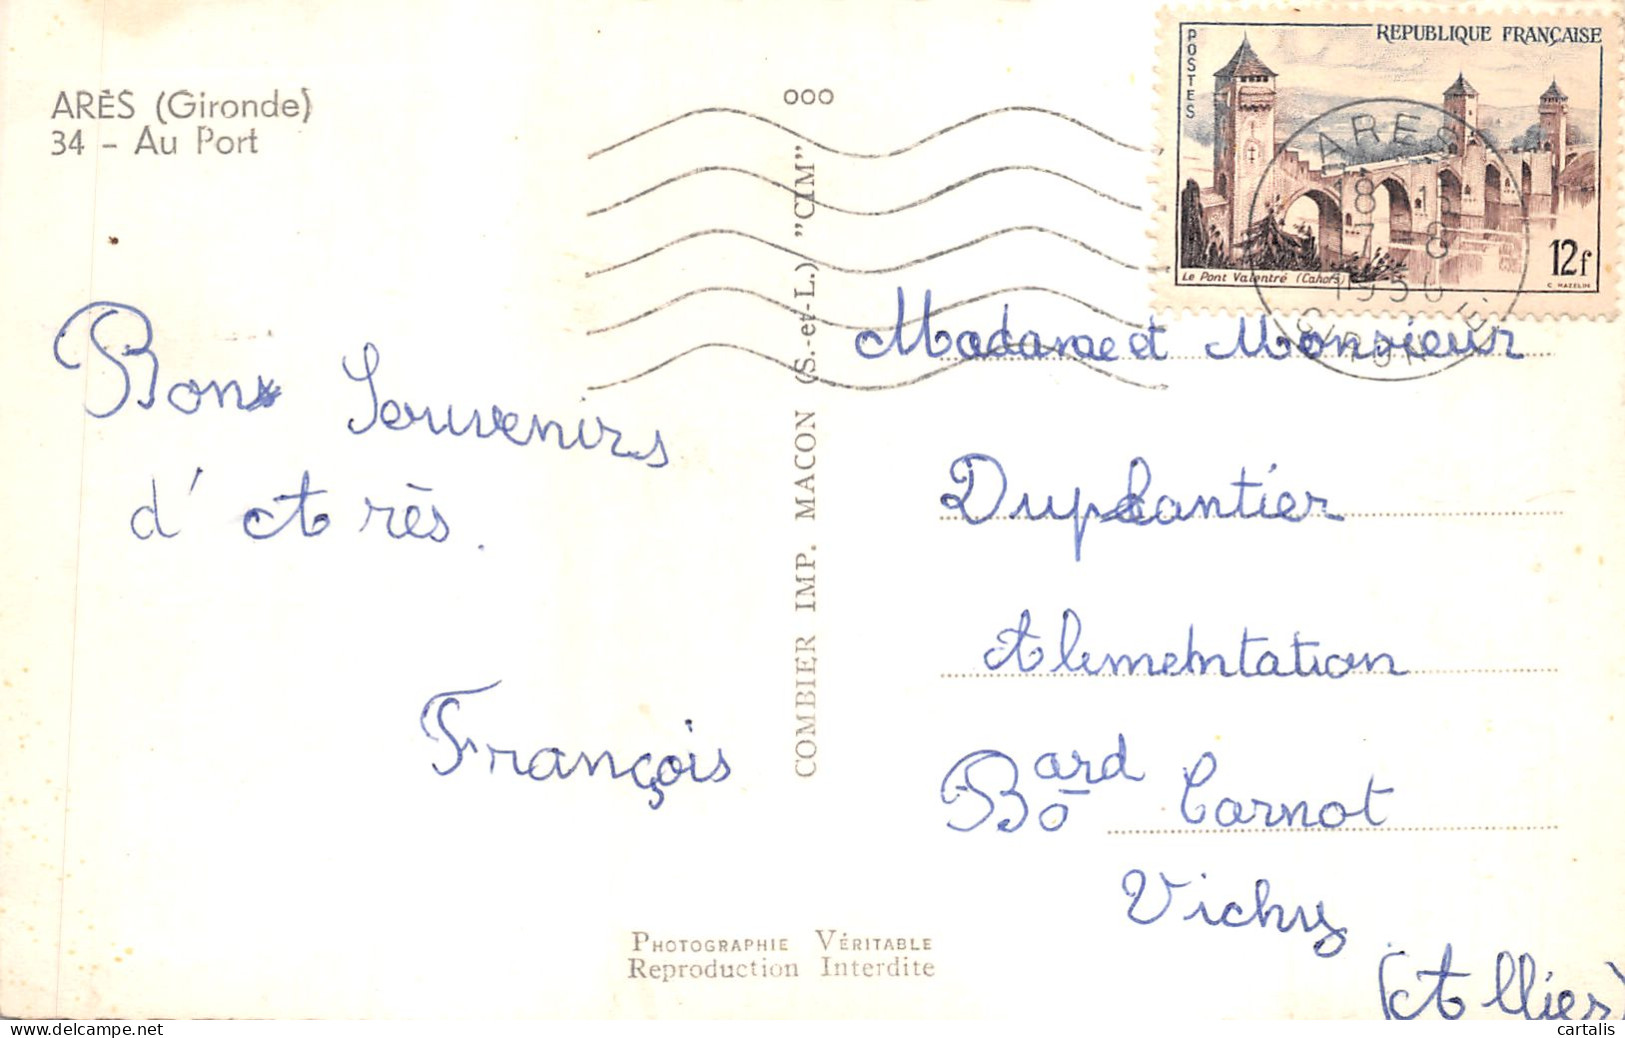 ARÈS (Gironde)
34 - Au Port
Bons Souvenirs
d'Arès.
François
PHOTOGRAPHIE VÉRITABLE
Reproduction Interdite
COMBIER IMP. MACON (S.-et-L.) "CIM"
000
POSTES
REPUBLIQUE FRANÇAISE
Le Pont Valentré (Cahors)
12f
C. HAZELIN
ARES
18H15
7-8
1956
GIRONDE
Madame et Monsieur
Duplantier
Alimentation
Bard Carnot
Vichy
(Allier)
cartalis